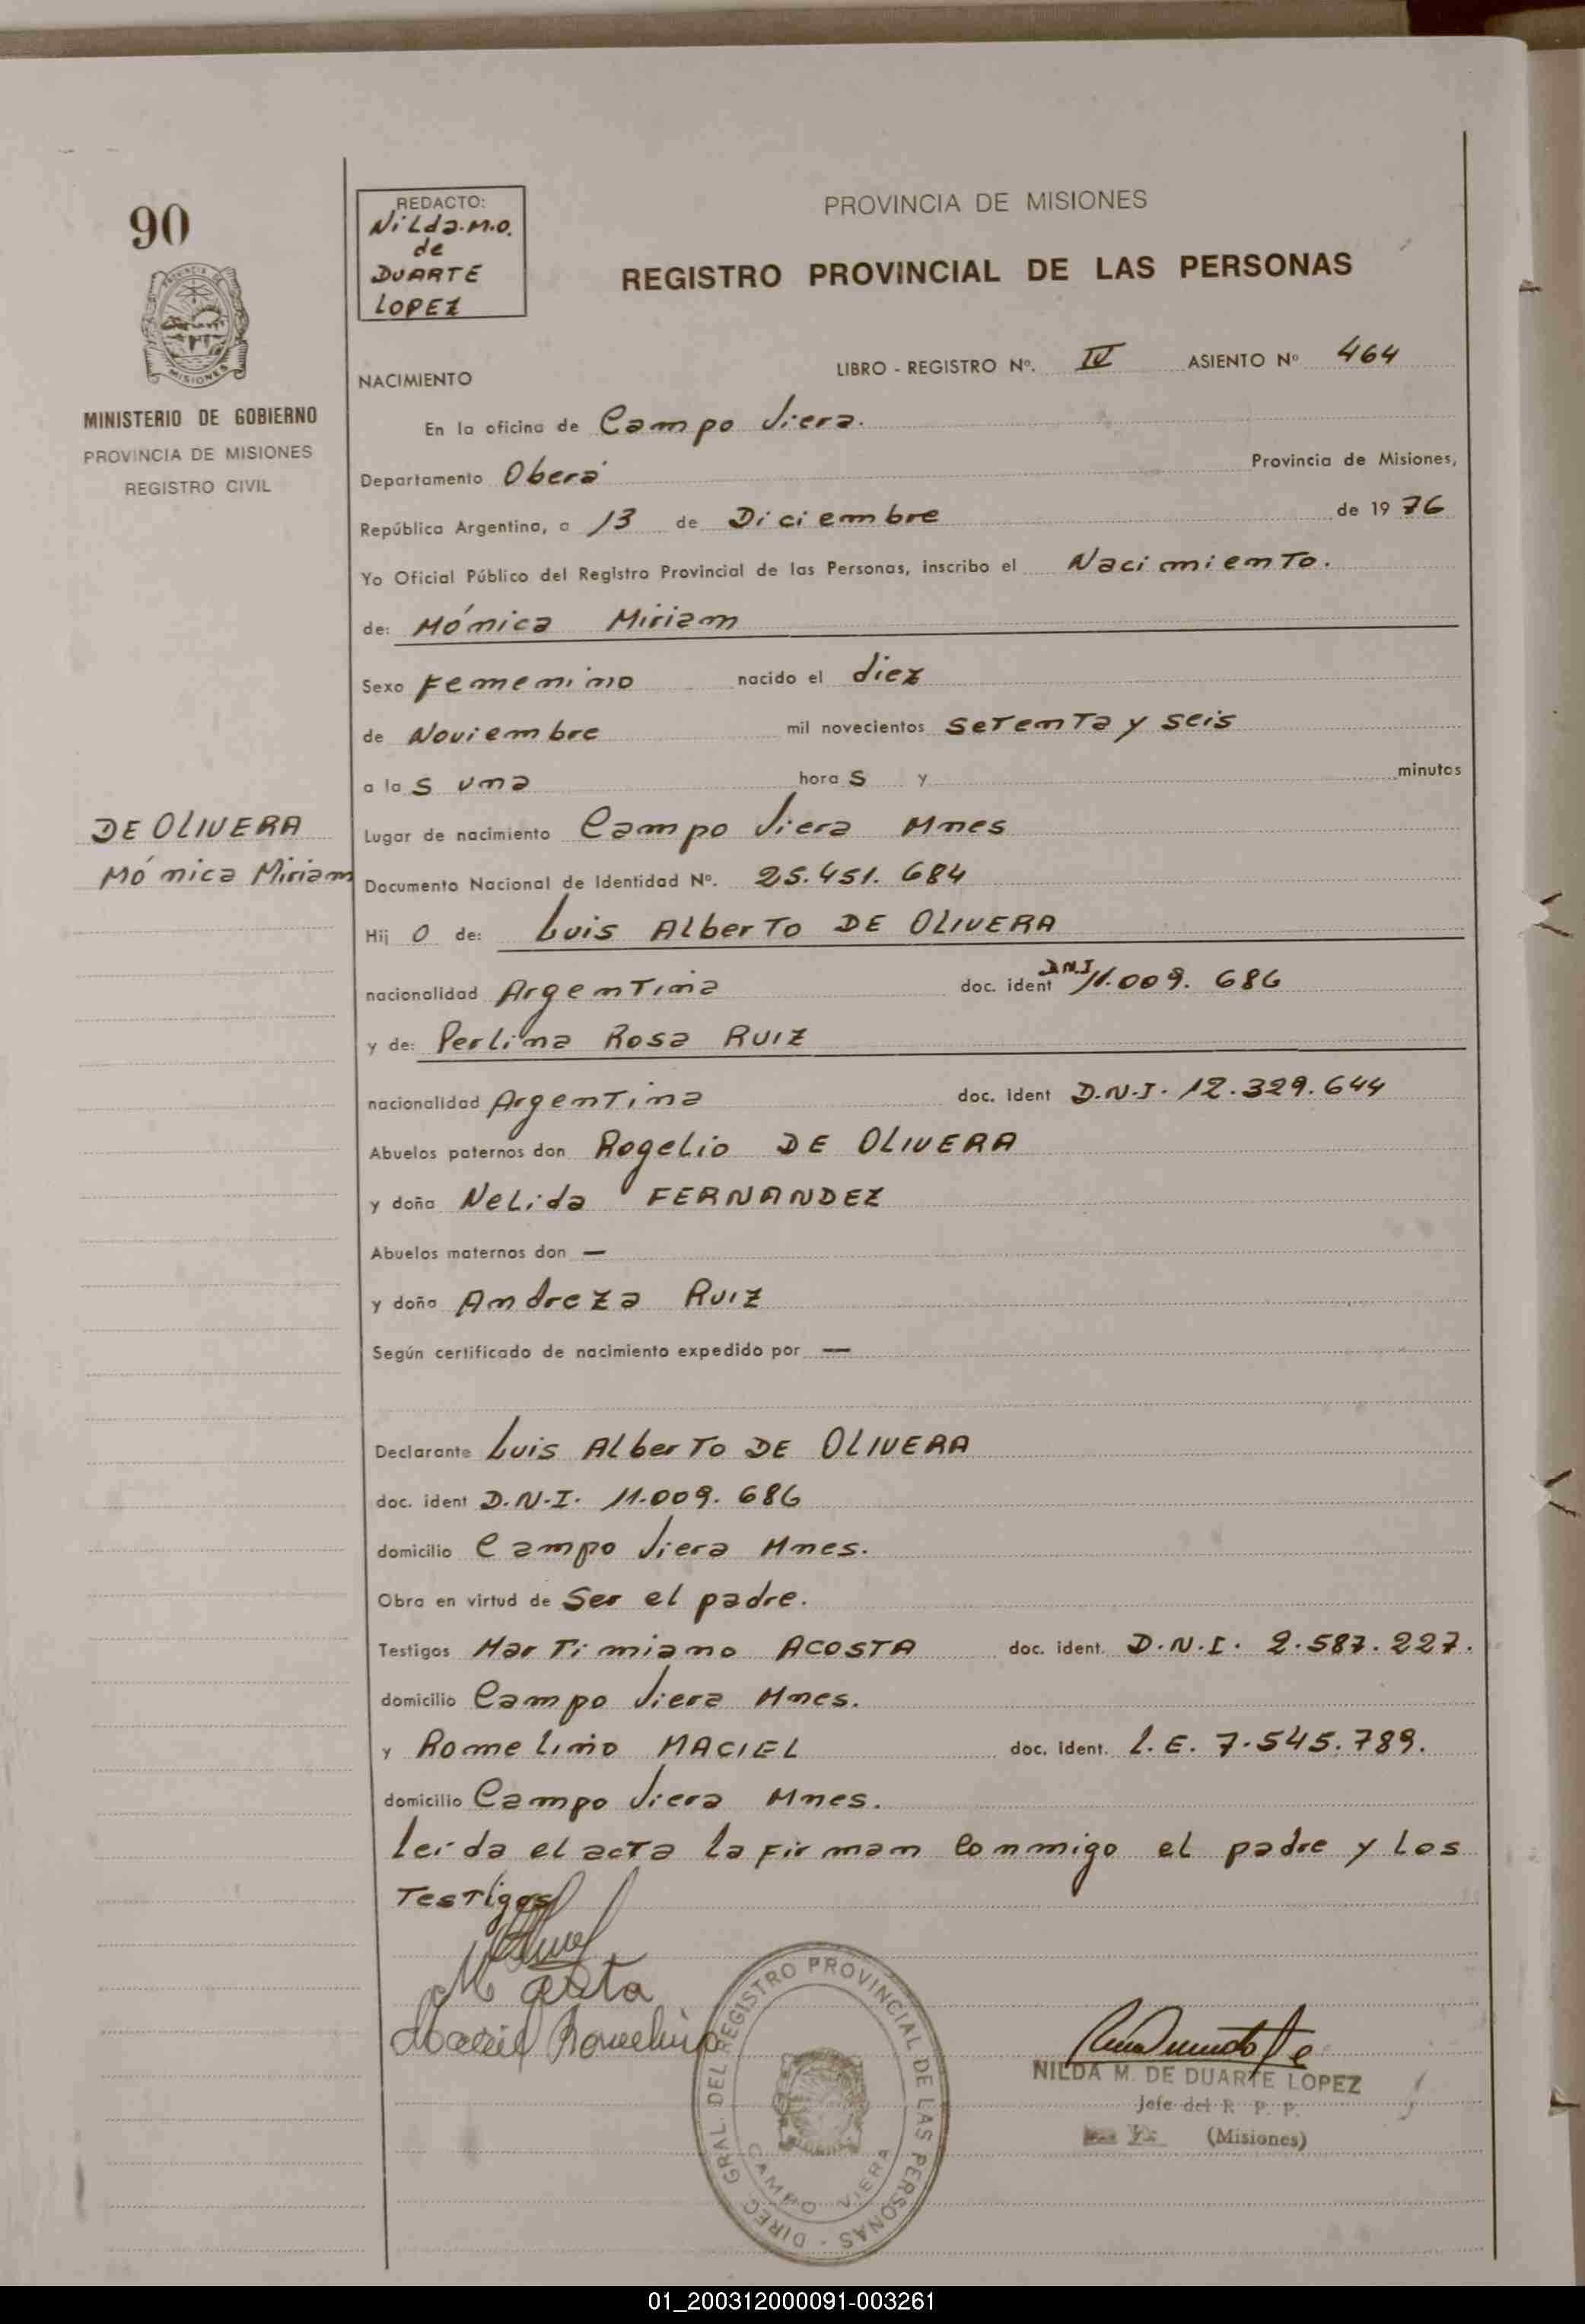 90
REDACTO:
Nilda.M.O.
de
DUARTE
LOPEZ
PROVINCIA DE MISIONES
REGISTRO PROVINCIAL DE LAS PERSONAS
MISIONES
MINISTERIO DE GOBIERNO
PROVINCIA DE MISIONES
REGISTRO CIVIL
LIBRO - REGISTRO Nº. IV ASIENTO Nº 464
NACIMIENTO
En la oficina de Campo Viera.
Departamento Oberá Provincia de Misiones,
República Argentina, a 13 de Diciembre de 1976
Yo Oficial Público del Registro Provincial de las Personas, inscribo el Nacimiento.
de: Mónica Miriam
Sexo Femenino nacido el diez
de Noviembre mil novecientos setenta y seis
a las una horas y minutos
DE OLIVERA
Mónica Miriam
Lugar de nacimiento Campo Viera Mnes
Documento Nacional de Identidad Nº. 25.451.684
Hijo de: Luis Alberto DE OLIVERA
nacionalidad Argentina doc. ident D.N.I 11.009.686
y de: Perlina Rosa RUIZ
nacionalidad Argentina doc. ident D.N.I. 12.329.644
Abuelos paternos don Rogelio DE OLIVERA
y doña Nelida FERNANDEZ
Abuelos maternos don —
y doña Andreza RUIZ
Según certificado de nacimiento expedido por —
Declarante Luis Alberto DE OLIVERA
doc. ident D.N.I. 11.009.686
domicilio Campo Viera Mnes.
Obra en virtud de Ser el padre.
Testigos Martimiano ACOSTA doc. ident. D.N.I. 2.587.227.
domicilio Campo Viera Mnes.
y Romelino MACIEL doc. ident. L.E. 7.545.789.
domicilio Campo Viera Mnes.
leida el acta la firman conmigo el padre y los
Testigos
M Acosta
Maciel Romelino
DIREC. GRAL. DEL REGISTRO PROVINCIAL DE LAS PERSONAS -
CAMPO VIERA
NILDA M. DE DUARTE LOPEZ
Jefe del R. P. P.
(Misiones)
01_200312000091-003261